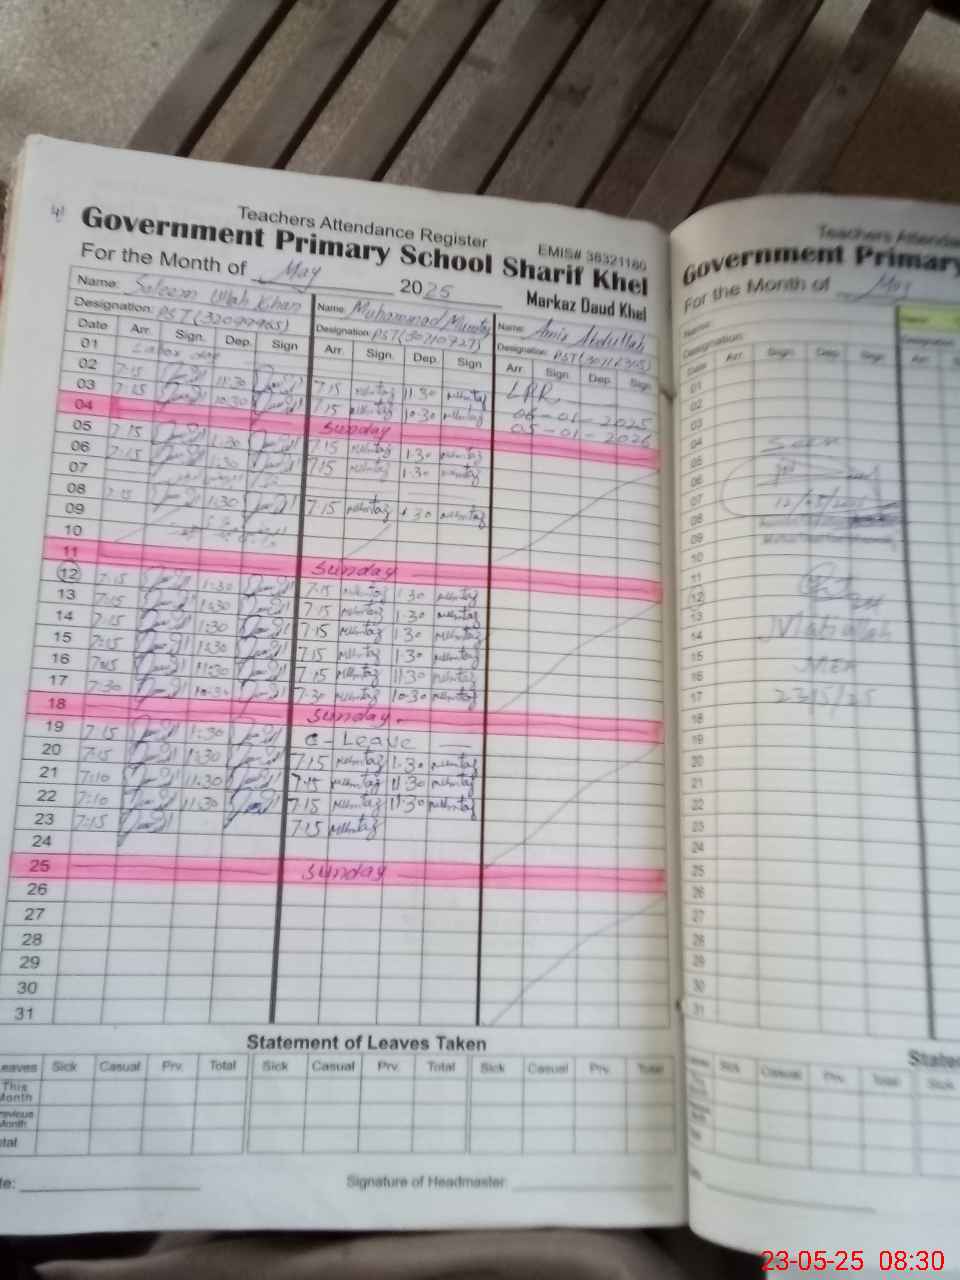 Teachers Attendance Register
Government Primary School Sharif Khel
EMIS# 38321180
For the Month of May 2025
Markaz Daud Khel
Name: Saleem Ullah Khan Name: Muhammad Mumtaz Name: Amir Abdullah
Designation: PST (32099965) Designation: PST (30710727) Designation: PST
Date Arr. Sign. Dep. Sign Arr. Sign. Dep. Sign Arr. Sign. Dep. Sign
01 Labor day
02 7:15 11:30 7:15 Mumtaz 11:30 Mumtaz LPR
03 7:15 10:30 7:15 Mumtaz 10:30 Mumtaz 06-01-2025
04 Sunday 05-01-2026
05 7:15 1:30 7:15 Mumtaz 1:30 Mumtaz
06 7:15 1:30 7:15 Mumtaz 1:30 Mumtaz
07
08 7:15 1:30 7:15 Mumtaz 1:30 Mumtaz
09
10
11 Sunday
12 7:15 1:30 7:15 Mumtaz 1:30 Mumtaz
13 7:15 1:30 7:15 Mumtaz 1:30 Mumtaz
14 7:15 1:30 7:15 Mumtaz 1:30 Mumtaz
15 7:15 11:30 7:15 Mumtaz 1:30 Mumtaz
16 7:15 11:30 7:15 Mumtaz 11:30 Mumtaz
17 7:30 10:30 7:30 Mumtaz 10:30 Mumtaz
18 Sunday
19 7:15 1:30 C-Leave
20 7:15 1:30 7:15 Mumtaz 1:30 Mumtaz
21 7:10 11:30 7:15 Mumtaz 11:30 Mumtaz
22 7:10 11:30 7:15 Mumtaz 11:30 Mumtaz
23 7:15 7:15 Mumtaz
24
25 Sunday
26
27
28
29
30
31
Statement of Leaves Taken
eaves Sick Casual Prv. Total Sick Casual Prv. Total Sick Casual Prv. Total
This Month
revious Month
tal
te: Signature of Headmaster
Teachers Attenda
Government Primary
For the Month of May
Name:
Designation:
Date Arr. Sign. Dep. Sign
01
02
03
04 Seen
05
06
07 12/05/2025
08
09
10
11
12
13
14 Matiullah
15
16 MEA
17 23/5/25
18
19
20
21
22
23
24
25
26
27
28
29
30
31
State
Sick Casual Prv. Total Sick
23-05-25 08:30